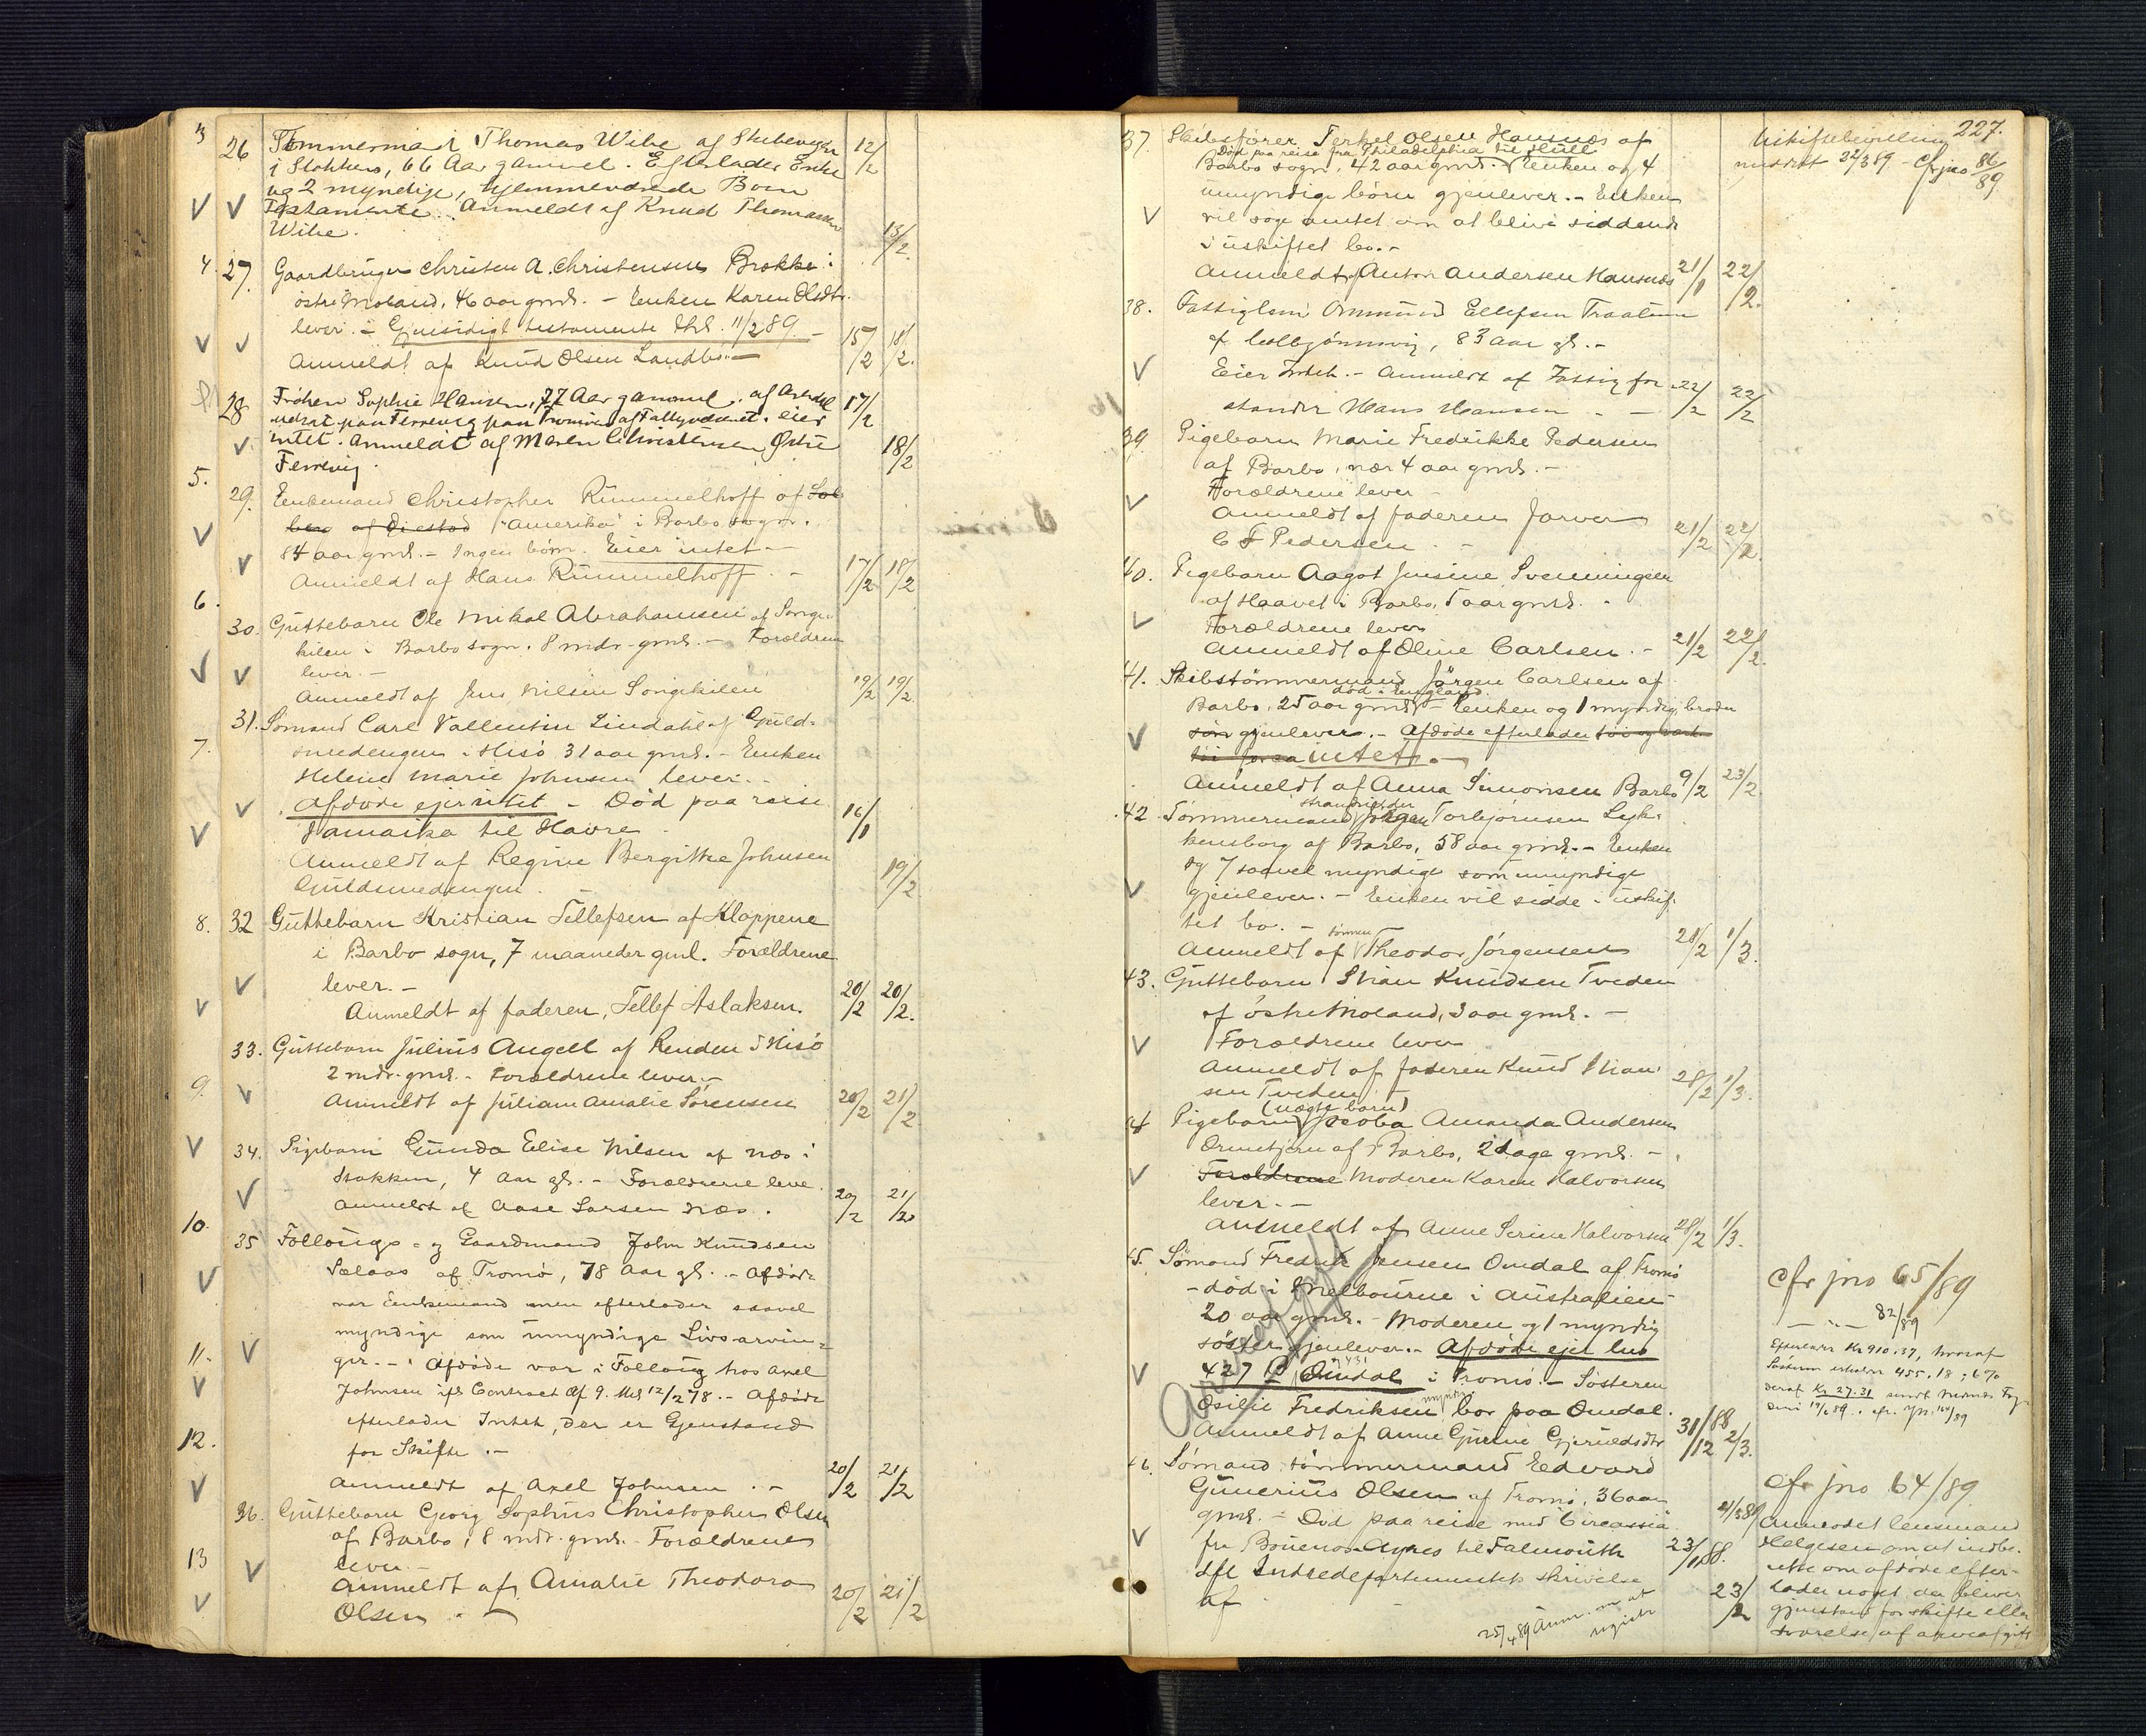 3 26 Tømmermand Thomas Wibe af Stubevigen 12/2
i Stokken, 66 Aar gammel. Efterlader Enke
og 2 myndige, hjemmeværende Børn
Testamente. Anmeldt af Knud Thomassen
Wibe. 13/2
4. 27. Gaardbruger Christen A. Christensen Brække i
østre Moland, 46 aar gml. – Enken Karen Olsdtr.
lever. – Gjensidigt testamente thl. 11/2 89. –
Anmeldt af Knud Olsen Landbö. – 15/2 18/2.
28 Frøken Sophie Hansen, 77 Aar gammel. af Arendal 17/2
udsat paa Færvig paa Tromøen af Fattigvæsenet. eier
intet. Anmeldt af Maren Christensen Østre 18/2
Færvig.
5. 29. Enkemand Christopher Rummelhoff af
"Amerika" i Barbo sogn.
84 aar gml. – Ingen börn. Eier intet –
Anmeldt af Hans Rummelhoff. – 17/2 18/2
6. 30. Guttebarn Ole Mikal Abrahamsen af Songe-
kilen i Barbo sogn. 8 mdr. gml. – Forældrene
lever. –
Anmeldt af Jens Nilsen Songekilen 19/2 19/2
7. 31. Sömand Carl Vallentin Lindahl af Guld-
smedengen i Hisö 31 aar gml. – Enken
Helene Marie Johnsen lever. –
Afdøde ejer intet – Död paa reise
Jamaika til Havre. 16/1
Anmeldt af Regine Bergitte Johnsen
Guldsmedengen. – 19/2
8. 32 Guttebarn Kristian Tellefsen af Kloppene
i Barbo sogn, 7 maaneder gml. Forældrene
lever. –
Anmeldt af faderen, Tellef Aslaksen. 20/2 20/2.
33. Guttebarn Julius Angell af Renden i Hisö
2 mdr. gml. – Forældrene lever. –
9. Anmeldt af Juliane Amalie Sörensen 20/2 21/2
34. Pigebarn Gunda Elise Nilsen af Næs i
Stokken, 4 Aar gl. – Forældrene leve.
Anmeldt af Aase Larsen Næs. 20/2 21/2
10. 35 Follougs- og Gaardmand John Knudsen
Sælaas af Tromø, 78 Aar gl. – Afdøde
var Enkemand men efterlader saavel
myndige som umyndige Livsarvin-
11. ger. – Afdøde var i Folloug hos Axel
Johnsen ifl. Contract af 9. thl 12/2 78. – Afdøde
efterlader Intet, der er Gjenstand
12. for Skifte. –
Anmeldt af Axel Johnsen. – 20/2 21/2
36. Guttebarn Georg Sophus Christopher Olsen
af Barbo, 8 mdr. gml. Forældrene
13 lever. –
Anmeldt af Amalie Theodora
Olsen. – 20/2 21/2
227.
37. Skibsfører Terkel Olsen Hansnæs af
Død paa reise fra Philadelphia til Hull
Barbo sogn, 42 aar gml. Enken og 4
umyndige börn gjenlever. – Enken
vil söge amtet om at blive siddende
i uskiftet bo. –
Anmeldt af Anton Andersen Hansnæs 21/1 22/2.
Uskiftebevilling
meddelt 22/3 89 – cfr jno 86/89
38. Fattiglem Ommund Ellefsen Traalum
af Kolbjørnsvig, 83 Aar gl. –
Eier Intet. – Anmeldt af Fattigfor-
stander Hans Hansen – 22/2 22/2
39. Pigebarn Marie Fredrikke Pedersen
af Barbo, nær 4 aar gml. –
Forældrene lever –
Anmeldt af faderen Farver
C F Pedersen. – 21/2 22/2.
40. Pigebarn Aagot Jensine Svenningsen
af Haavet i Barbo, 5 aar gml. –
Forældrene lever
Anmeldt af Oline Carlsen. – 21/2 22/2.
41. Skibstömmermand Jörgen Carlsen af
död i England.
Barbo, 25 aar gml. – Enken og 1 myndig broder
sön gjenlever. – Afdøde efterlader
intet. –
Anmeldt af Anna Simonsen Barbo 9/2 23/2.
42. Tömmermand Jörgen Torbjörnsen Lyk-
kensborg af Barbo, 58 aar gml. – Enken
og 7 saavel myndige som umyndige
gjenlever. – Enken vil sidde i uskif-
tet bo. –
Anmeldt af sönnen Theodor Jörgensen 28/2 1/3.
43. Guttebarn Stian Knudsen Tveden
af östre Moland, 3 aar gml. –
Forældrene lever
Anmeldt af faderen Knud Stian-
sen Tveden 28/2 1/3.
(uægte barn)
44 Pigebarn Jacoba Amanda Andersen
Ormetjern af Barbo, 2 dage gml. –
Forældrene Moderen Karen Halvorsen
lever. –
Anmeldt af Anne Serine Halvorsen 28/2 1/3.
45. Sømand Fredrik Jensen Omdal af Tromö
– död i Melbourne i Australien –
20 aar gml. – Moderen og 1 myndig
söster gjenlever. – Afdøde ejer
427 Omdal i Tromö. – Søsteren
Osilie Fredriksen bor paa Omdal.
Anmeldt af Anne Gurine Gjeruldsdtr 31/12 88 2/3.
cfr jno 65/89
– " – 82/89
Efterlader Kr 910.37, hvoraf
Søsteren erholder 455.18, 6 %
deraf Kr 27.31
46. Sømand tömmermand Edvard
Gunerius Olsen af Tromö, 36 aar
gml. – Død paa reise med Circassia
fra Buenos Ayres til Falmouth 23/1 88.
ifl Indredepartementets skrivelse
af 23/2
25/4 89 Anm. om at
cfr jno 64/89
4/3 89 Anmodet lensmand
Helgesen om at indbe-
rette om afdøde efter-
lader noget der bliver
gjenstand for skifte eller
svarelse af arveafgift